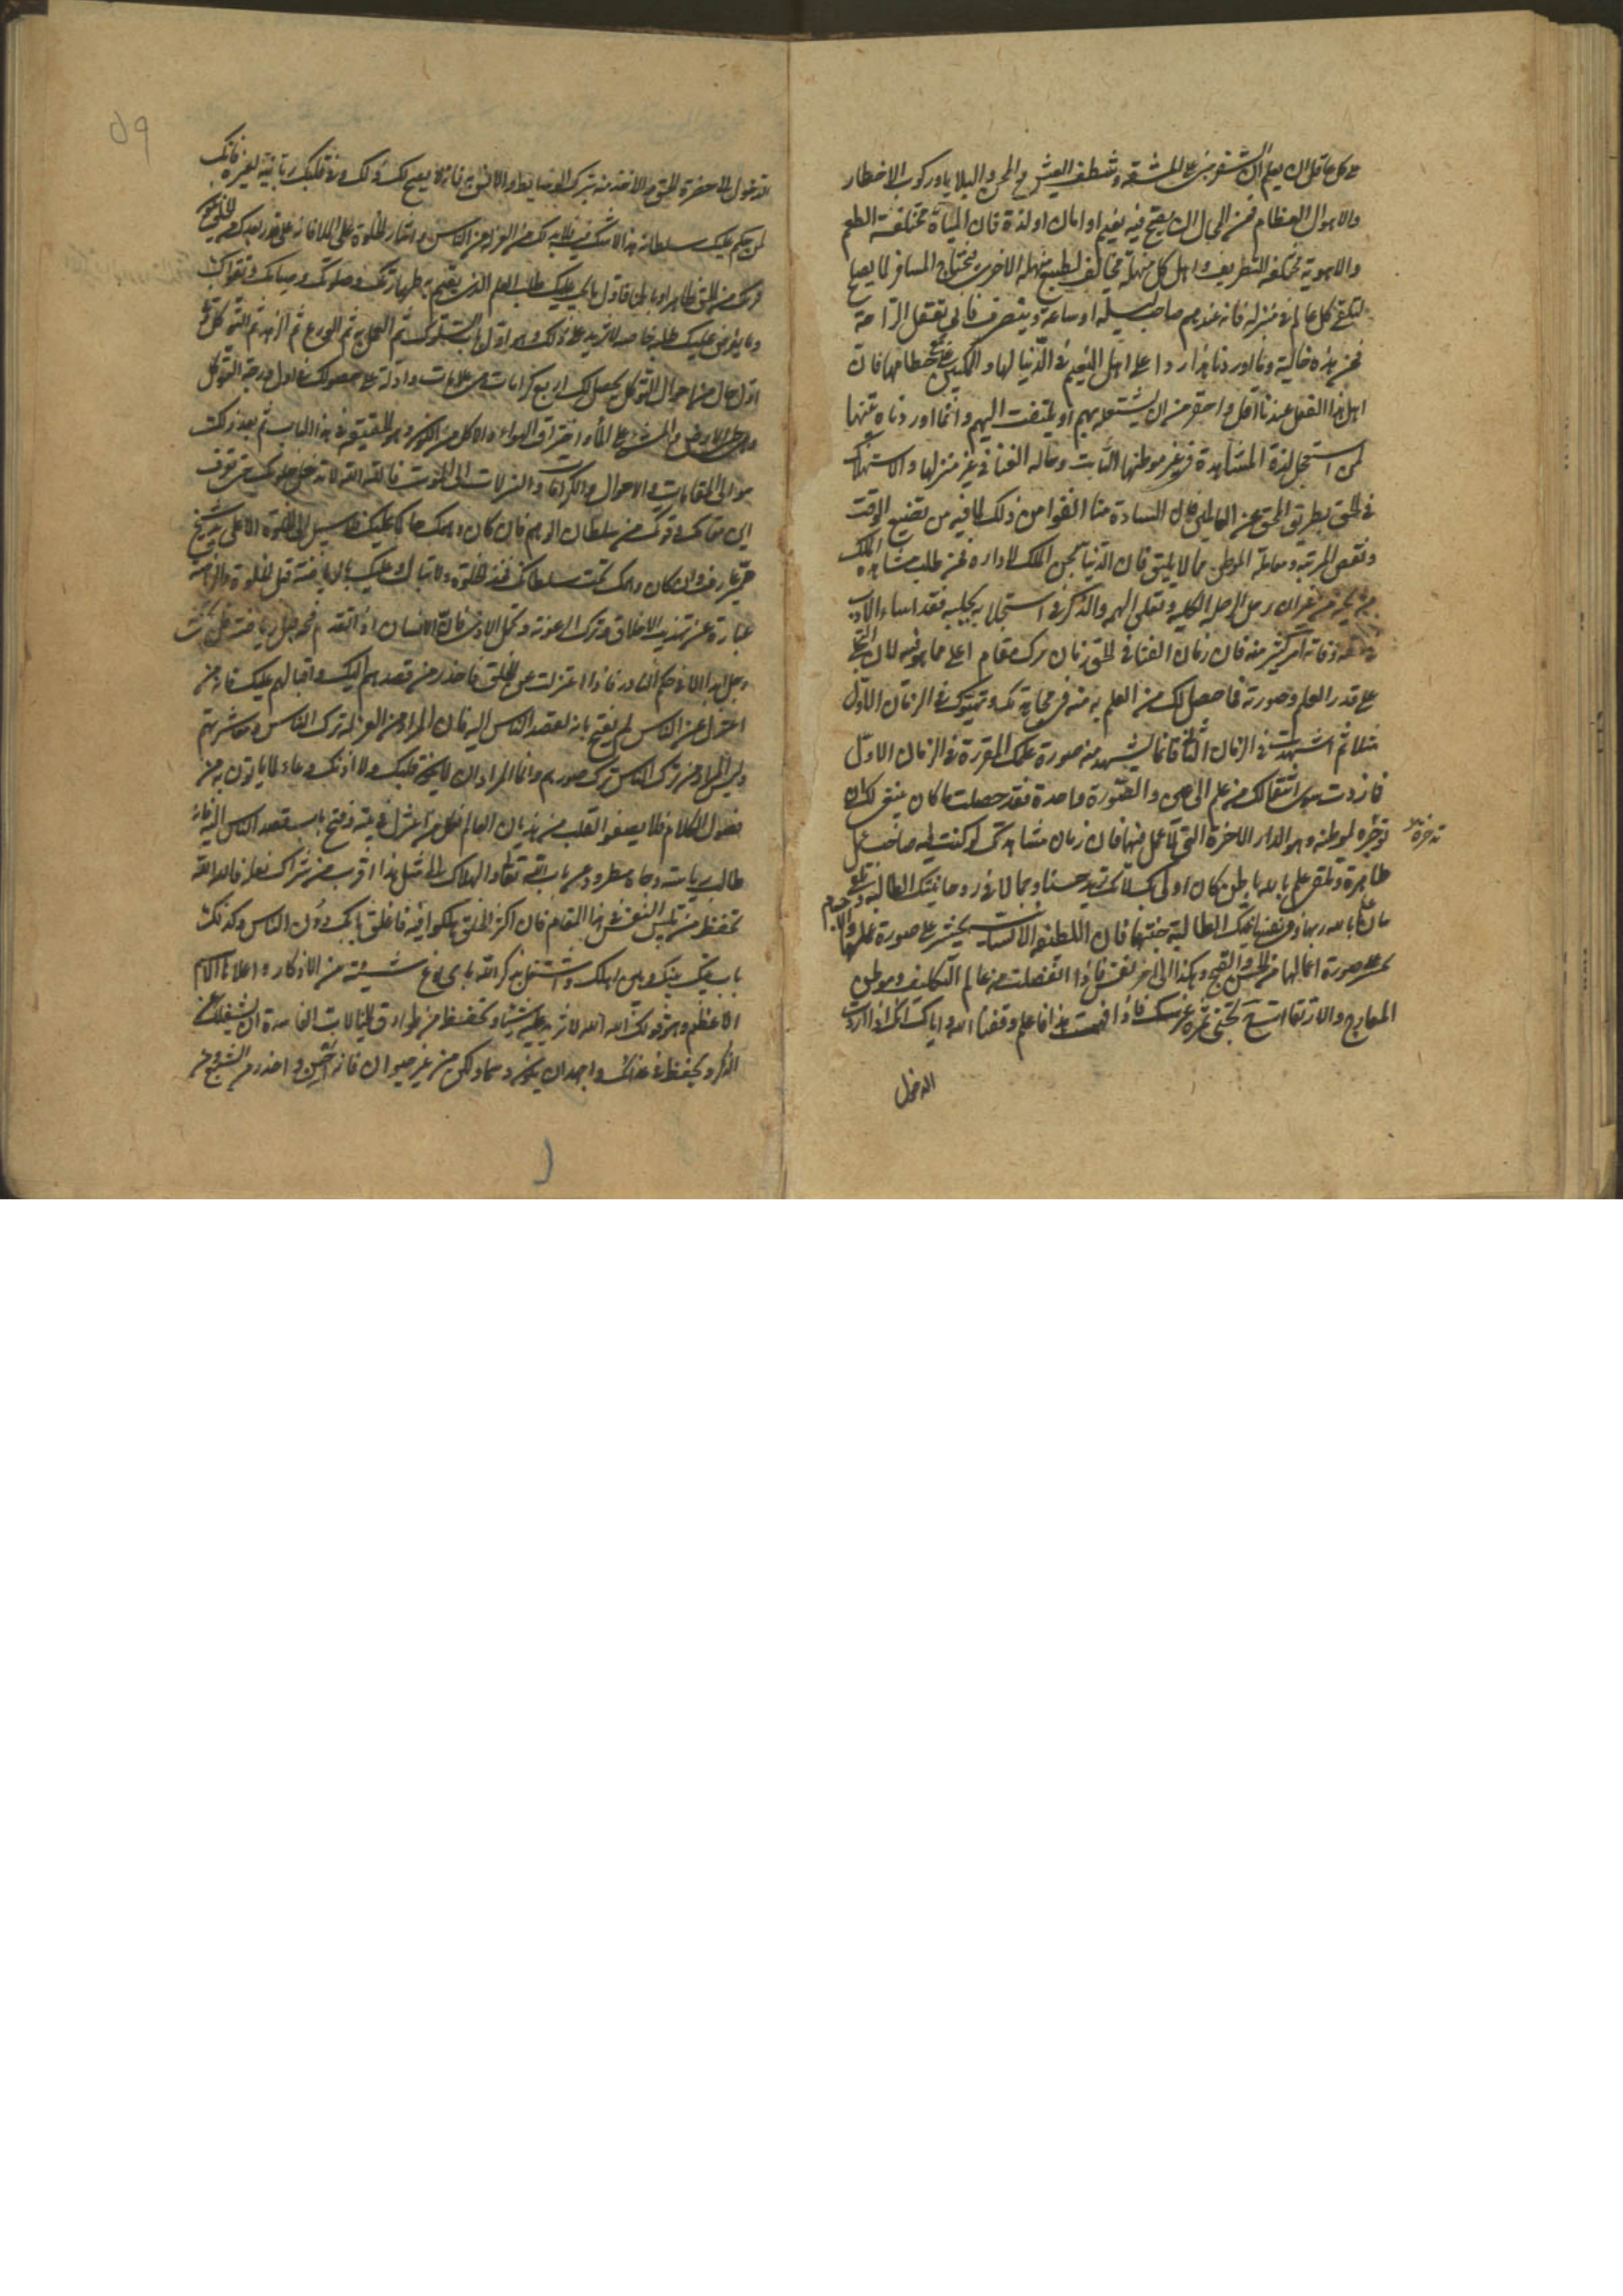 على كل عاقل ان يعلم ان السفر مبنى على المشقة وشظف العيش والمحن والبلايا وركوب الاخطار
والاهوال العظام فمن المحال ان يصح فيه نعيم او امان او لذة فان المياه مختلفة الطعم
والاهوية مختلفة التصريف واهل كل منهلة يخالف لطبع منهلة الاخرى فيحتاج المسافر لما يصلح
لتلقى كل عالم فى منزله فانه عندهم صاحب ليلة او ساعة وينصرف فانى يعقل الراحة
فيمن هذه حاله وما اوردنا هذا ردا على اهل النعيم فى الدنيا لها والمكبين على حطامها فان
اهل هذا الفعل عندنا اقل واحقر من ان يشتغل بهم او يلتفت اليهم وانما اوردناه تنبيها
لمن استعجل لذة المشاهدة فى غير موطنها الثابت وحالة الفنا فى غير منزلها والاستهلاك
فى الحق بطريق المحق عن العالمين فان السادة منا انفوا من ذلك لما فيه من تضييع الوقت
ونقص المرتبة ومعاملة الموطن بما لا يليق فان الدنيا سجن الملك لا داره فمن طلب مشاهدة الملك
فى سجنه من غير ان يرحل الرحلة الكلية فقد اساء الادب
وفاته امر كثير منه فان زمان الفنا فى الحق زمان ترك مقام اعلى مما هو فيه لان التجلى
على قدر العلم وصورته فما حصل لك من العلم به منه فى مجاهدتك وتهيؤك فى الزمان الاول
مثلا ثم اشهدت فى الزمان الثانى فانما يشهد منه صورة علمك المقررة فى الزمان الاول
فما زدت سوى انتقالك من علم الى عين والصورة واحدة فقد حصلت ما كان ينبغى لك ان
تؤخره لموطنه وهو الدار الاخرة التى لا عمل فيها فان زمان مشاهدتك لو كنت فيه صاحب عمل
تدخره
ظاهرة وتلقى علم بالله باطن كان اولى بك لانك تزيد حسنا وجمالا فى روحانيتك الطالبة
بالله ربها وفى نفسانيتك الطالبة جنتها فان اللطيفة الانسانية تحشر على صورة علمها
على صورة اعمالها من الحسن والقبح وهكذا الى اخر نفس فاذا انفصلت من عالم التكليف وموطن
المعارج والارتقاات تجنى ثمرة غرسك فاذا فهمت هذا فاعلم وفقنا الله واياك انك اذا اردت
الدخول
59
الدخول الى حضرة الحق والاخذ منه بترك الوسايط والانس به فانه لا يصح لك ذلك وفى قلبك ربانية لغيره فانك
لمن حكم عليك سلطانه هذا لا شك فيه فلا بد لك من العزلة عن الناس وايثار الخلوة على الملا فانه على قدر بعدك من الخلق
قربك من الحق ظاهرا وباطنا فاول ما يجب عليك طلب العلم الذى يقيم به طهارتك وصلوتك وصيامك وتقواك
وما يفرض عليك طلبه خاصة لا تزيد على ذلك وهو اول باب السلوك ثم العمل به ثم الورع ثم الزهد ثم التوكل وفى
اول حال من احوال التوكل يحصل لك اربع كرامات هى علامات وادلة على حصولك فى اول درجة التوكل
وهى طى الارض والمشى على الماء واختراق الهواء والاكل من الكون وهو الحقيقة فى هذا الباب ثم بعد ذلك
توالى المقامات والاحوال والكرامات والتنزلات الى الموت فالله الله لا تدخل خلوتك حتى تعرف
اين مقامك وقوتك من سلطان الوهم فان كان وهمك حاكما عليك فلا سبيل الى الخلوة الا على يد شيخ
مميز عارف وان كان وهمك تحت سلطانك فخذ الخلوة ولا تبال وعليك بالرياضة قبل الخلوة والرياضة
عبارة عن تهذيب الاخلاق وترك الرعونة وتحمل الاذى فان الانسان اذا تقدم فتحه قبل رياضته فلن
يجئ منه رجل ابدا الا فى حكم النادر فاذا اعتزلت عن الخلق فاحذر من قصدهم اليك واقبالهم عليك فانه من
اعتزل عن الناس لم يفتح بابه لقصد الناس اليه فان المراد من العزلة ترك الناس ومعاشرتهم
وليس المراد من ترك الناس ترك صورهم وانما المراد ان لا يكون قلبك ولا اذنك وعاء لما ياتون به من
فضول الكلام فلا يصفو القلب من هذيان العالم فكل من اعتزل فى بيته وفتح باب قصد الناس اليه فانه
طالب رياسة وجاه مطرود عن باب الله تعالى والهلاك الى مثل هذا اقرب من شراك نعله فالله الله
تحفظ من تلبيس النفس فى هذا المقام فان اكثر الخلق هلكوا فيه فاغلق بابك دون الناس وكذلك
باب بيتك بينك وبين اهلك واشتغل بذكر الله باى نوع شئته من الاذكار واعلاها الاسم
الاعظم وهو قولك الله الله لا تزيد عليه شيئا وتحفظ من طوارق الخيالات الفاسدة ان يشغلك عن
الذكر وتحفظ فى غذائك واجهد ان يكون دسما ولكن من غير حيوان فانه احسن واحذر من الشبع ومن